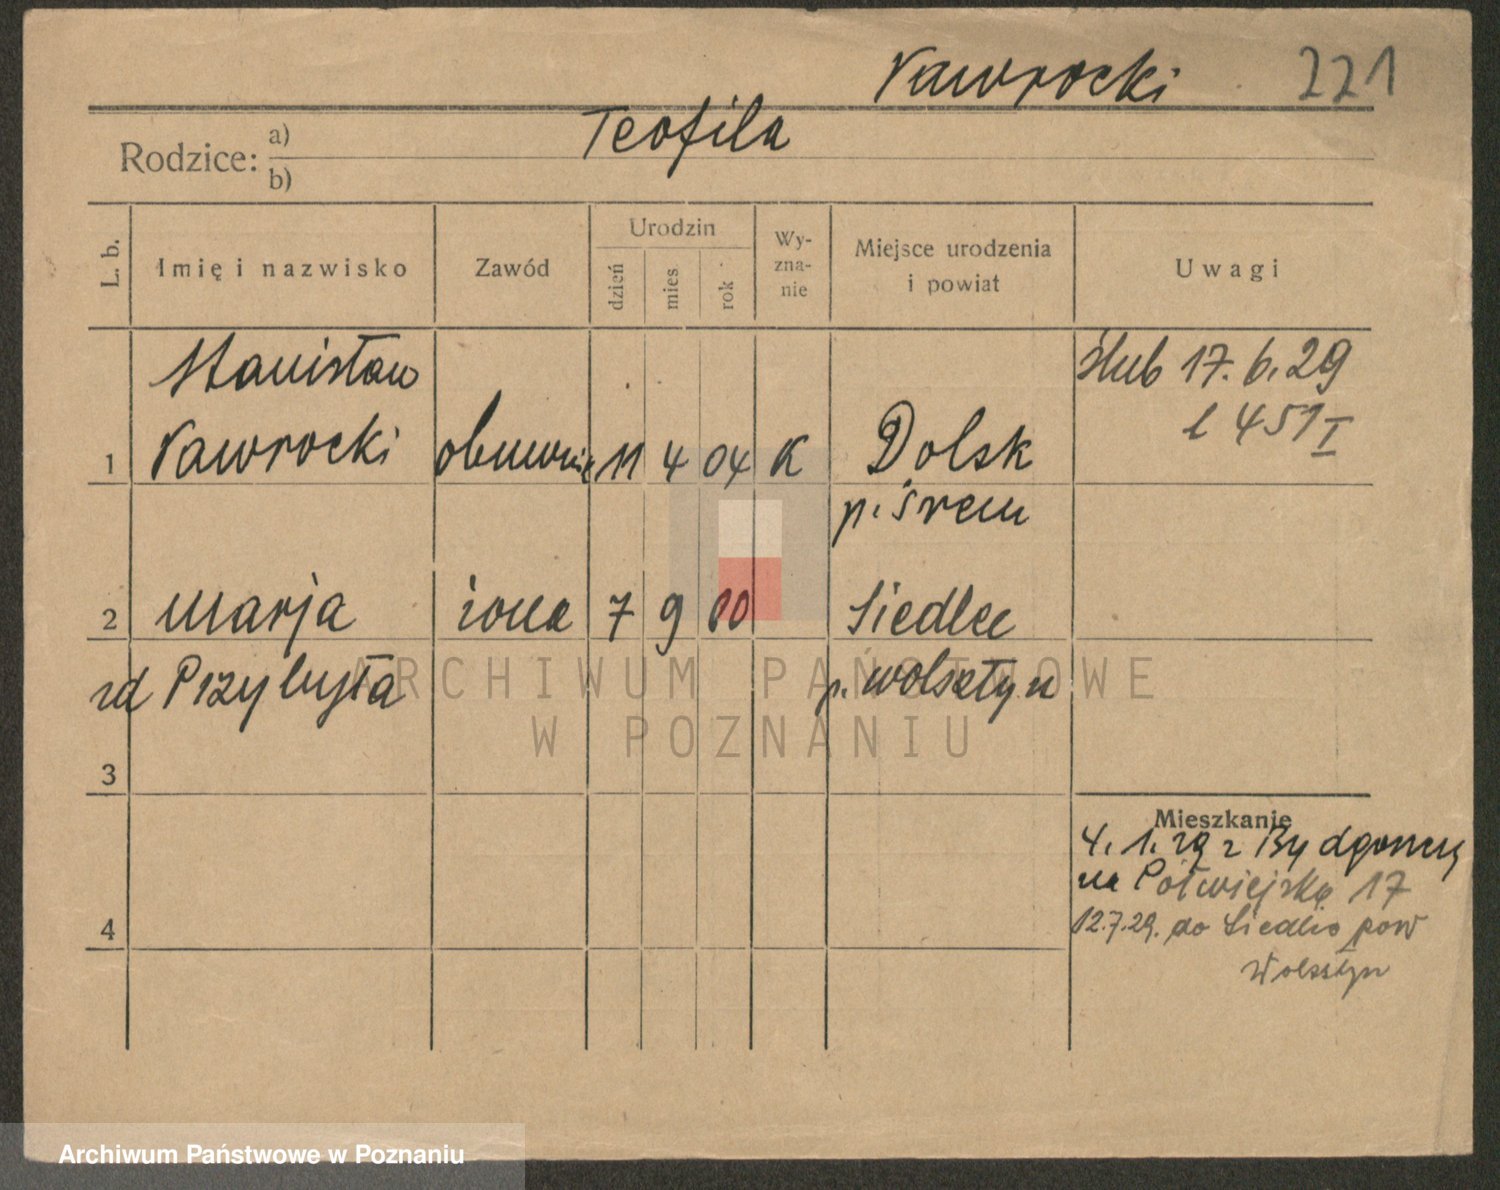 Nawrocki 221
Teofila
Rodzice: a)
b)
L. b.
Imię i nazwisko
Zawód
Urodzin
dzień
mies
rok
Wy-
zna-
nie
Miejsce urodzenia
i powiat
Uwagi
Stanisław
Nawrocki
1
obuwnik
11
4
04
K
Dolsk
p. Śrem
Ślub 17.6.29
l 451 I
2
Marja
żona
7
9
00
Siedlec
zd Przybyła
p. Wolsztyn
3
4
Mieszkanie
4. 1. 29 z Bydgoszczy
na Półwiejską 17
12.7.29. do Siedlec pow
Wolsztyn
ARCHIWUM PAŃSTWOWE
W POZNANIU
Archiwum Państwowe w Poznaniu